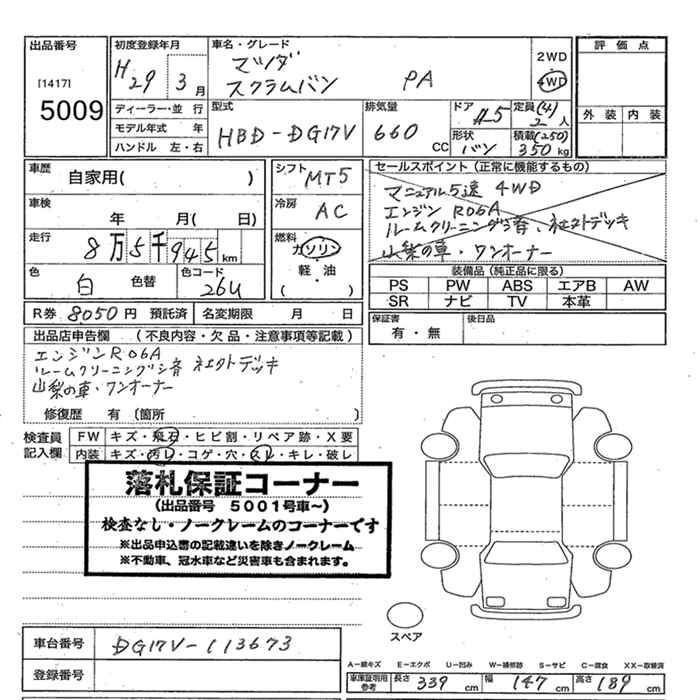 出品番号
[1417]
5009
初度登録年月
H29 3月
ディーラー・並 行
モデル年式 年
ハンドル 左・右
車名・グレード
マツダ
スクラムバン PA
2WD
4WD
型式
HBD-DG17V
排気量
660 CC
ドア
5
形状
バン
定員(4)
2人
積載(250)
350kg
評 価 点
外 装 内 装
車歴
自家用( )
車検
年 月( 日)
走行
8万5千945km
色
白 色替
色コード
26U
シフト
MT5
冷房
AC
燃料
ガソリン
軽・油
( )
セールスポイント(正常に機能するもの)
マニュアル5速 4WD
エンジン R06A
ルームクリーニング済
山梨の車・ワンオーナー
装備品(純正品に限る)
PS PW ABS エアB AW
SR ナビ TV 本革
R券 8050円 預託済 名変期限 月 日
保証書
有・無
後日品
出品店申告欄 (不良内容・欠品・注意事項等記載)
エンジンR06A
ルームクリーニング済
山梨の車・ワンオーナー
修復歴 有 〔箇所 〕
検査員
記入欄
FW キズ・飛石・ヒビ割・リペア跡・X要
内装 キズ・汚レ・コゲ・穴・スレ・キレ・破レ
落札保証コーナー
(出品番号 5001号車~)
検査なし・ノークレームのコーナーです
※出品申込書の記載違いを除きノークレーム
※不動車、冠水車など災害車も含まれます。
スペア
車台番号 DG17V-113673
登録番号
A-線キズ E-エクボ U-凹み W-補修跡 S-サビ C-腐食 XX-取替済
車庫証明用
参考
長さ 339 cm 幅 147 cm 高さ 189 cm